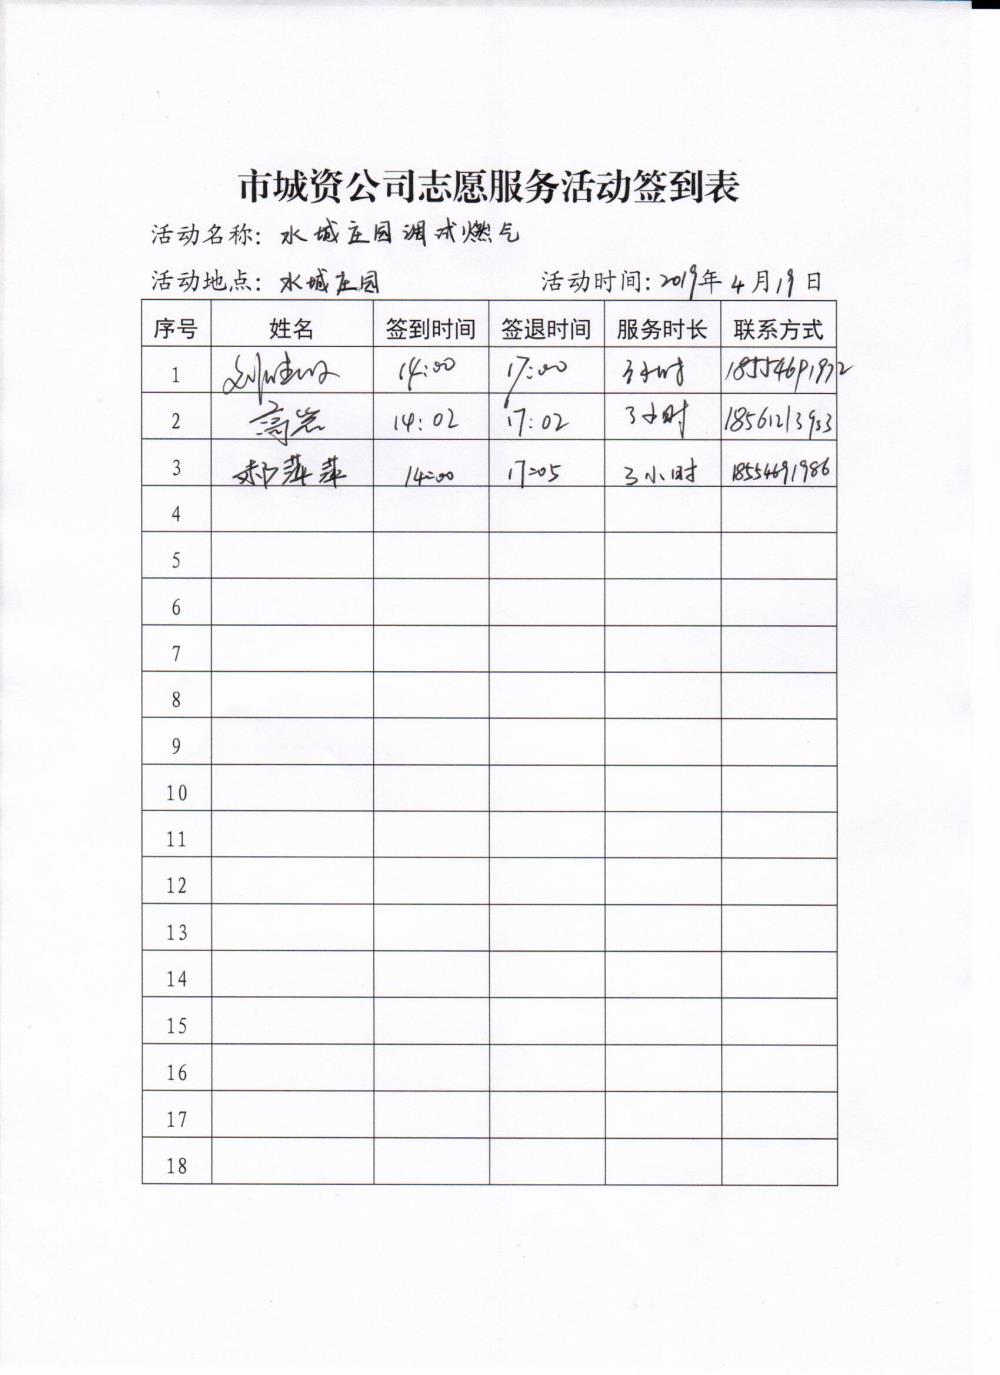 市城资公司志愿服务活动签到表
活动名称: 水城庄园调试燃气
活动地点: 水城庄园 活动时间: 2019年4月19日
序号 姓名 签到时间 签退时间 服务时长 联系方式
1 14:00 17:00 3小时 18554691972
2 高岩 14:02 17:02 3小时 18561213933
3 郝萍萍 14:00 17:05 3小时 18554691986
4
5
6
7
8
9
10
11
12
13
14
15
16
17
18